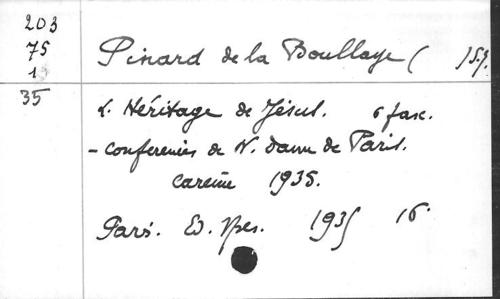 203
75
1
35
Pinard de la Boullaye (
L. Héritage de Jésus. 6 fasc.
- Conferences de N. Dame de Paris.
Careme 1935.
Paris. Ed. Spes. 1935 16°